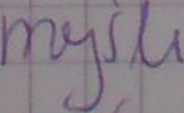 myśli